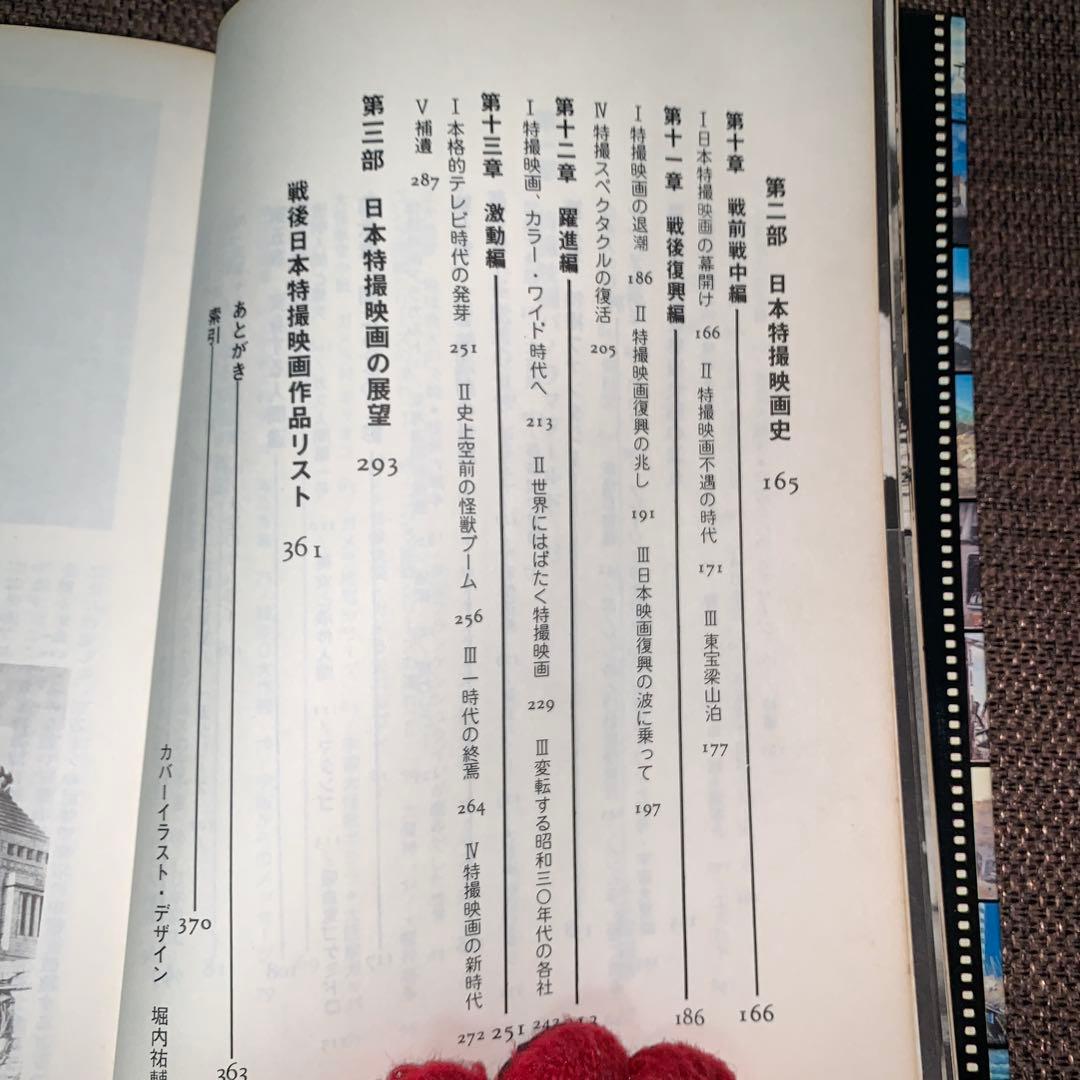 第二部 日本特撮映画史 165
第十章 戦前戦中編 166
Ⅰ 日本特撮映画の幕開け 166 Ⅱ 特撮映画不遇の時代 171 Ⅲ 東宝梁山泊 177
第十一章 戦後復興編 186
Ⅰ 特撮映画の退潮 186 Ⅱ 特撮映画復興の兆し 191 Ⅲ 日本映画復興の波に乗って 197
Ⅳ 特撮スペクタクルの復活 205
第十二章 躍進編
Ⅰ 特撮映画、カラー・ワイド時代へ 213 Ⅱ 世界にはばたく特撮映画 229 Ⅲ 変転する昭和三〇年代の各社 242
第十三章 激動編 251
Ⅰ 本格的テレビ時代の発芽 251 Ⅱ 史上空前の怪獣ブーム 256 Ⅲ 一時代の終焉 264 Ⅳ 特撮映画の新時代 272
Ⅴ 補遺 287
第三部 日本特撮映画の展望 293
戦後日本特撮映画作品リスト 361
あとがき 363
索引 370
カバーイラスト・デザイン 堀内祐輔